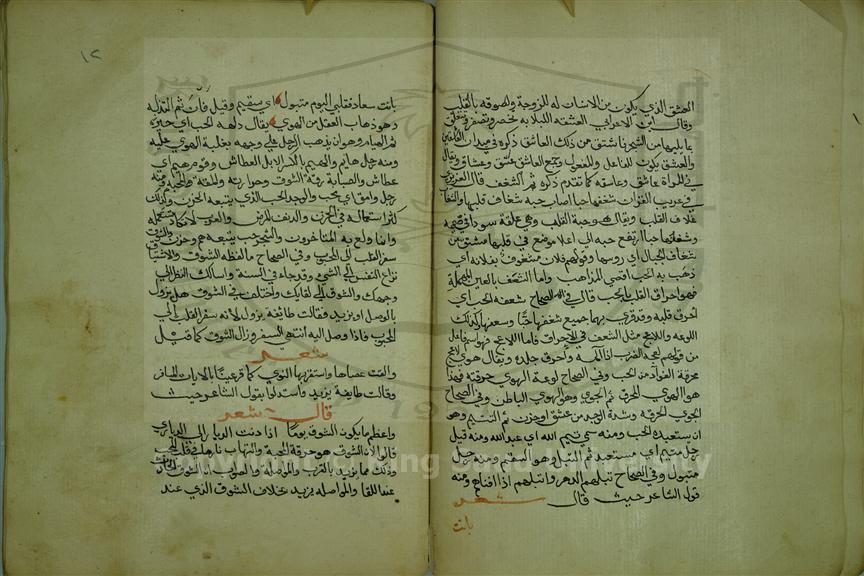 العشق الذي يكون من الانسان له للزوجة ولصوقه بالقلب
وقال ابن الاعرابي العشقة اللبلابه تخضر وتصفر وتعلق
بما يليها من الشجر فاشتق من ذلك العاشق ذكره في
والعشق يكون للفاعل وللمفعول وجمع العاشق عشق وعشاق ويقال
في المراة عاشق وعاشقه كما تقدم ذكره ثم الشغف قال العزيزي
في غريب القران شغفها حبا اصاب حبه شغاف قلبها والشغاف
غلاف القلب ويقال هو حبة القلب وهي علقة سودا في صميمه
وشغفها حبا ارتفع حبه الى اعلا موضع في قلبها مشتق من
شغاف الجبال اي روسها وقولهم فلان مشغوف بفلانه اي
ذهب به الحب اقصى المذاهب واما الشعف بالعين المهملة
فهو احراق القلب بالحب قال في الصحاح شعفه الحب اي
احرق قلبه وقد قرئ بهما جميعا شغفها حبا وشعفها كذلك
اللوعه واللاعج مثل الشعف في الاحراق فاما اللاعج فهو اسم فاعل
من قولهم لعجه الضرب اذا المه واحرق جلده ويقال هوى لاعج
محرقة الفواد من الحب وفي الصحاح لوعة الهوى حرقته فهذا
هو الهوى المحرق ثم الجوى وهو الهوى الباطن وفي الصحاح
الجوى الحرقه وشدة الوجد من عشق او حزن ثم التتيم وهو
ان يستعبده الحب ومنه سمي تيم الله اي عبد الله ومنه قيل
رجل متيم اي مستعبد ثم التبل وهو السقم ومنه رجل
متبول وفي الصحاح تبلهم الدهر واتبلهم اذا افناهم ومنه
قول الشاعر حيث قال شعر
بانت
١٢
بانت سعاد فقلبي اليوم متبول اي سقيم وقيل فان ثم التدله
وهو ذهاب العقل من الهوى يقال دلهه الحب اي حيره
ثم الهيام وهو ان يذهب الرجل على وجهه بغلبة الهوى عليه
ومنه رجل هايم والهيم بالكسر الابل العطاش وقوم هيم اي
عطاش والصبابة رقة الشوق وحرارته والمقة المحبه ومنه
رجل وامق اي محب والوجد الحب الذي يتبعه الحزن وكذلك
كثر استعماله في الحزن والدنف المرض والعرب لا تكاد تستعمله
وانما ولع به المتاخرون والشجو حب يتبعه هم وحزن والشوق
سفر القلب الى المحبوب وفي الصحاح ما لفظه الشوق والاشتياق
نزاع النفس الى الشي وقد جاء في السنة واسالك النظر الى
وجهك والشوق الى لقايك واختلف في الشوق هل يزول
بالوصل او يزيد فقالت طايفة يزول لانه سفر القلب الى
المحبوب فاذا وصل اليه انتهى السفر وزال الشوق كما قيل
شعر
والقت عصاها واستقر بها النوى كما قر عينا بالاياب المسافر
وقالت طايفة يزيد واستدلوا بقول الشاعر حيث
قال شعر
واعظم ما يكون الشوق يوما اذا دنت الديار الى الديار
قالوا لان الشوق هو حرقة المحبة والتهاب نارها في قلب المحب
وذلك مما يزيد بالقرب والمواصلة والصواب ان الشوق الحادث
عند اللقا والمواصله يزيد خلاف الشوق الذي عند